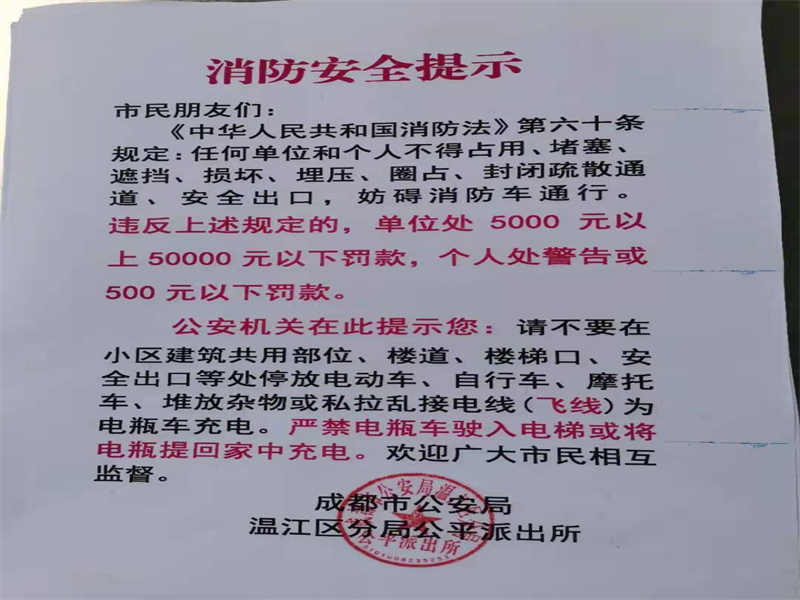 消防安全提示
市民朋友们:
《中华人民共和国消防法》第六十条
规定:任何单位和个人不得占用、堵塞、
遮挡、损坏、埋压、圈占、封闭疏散通
道、安全出口，妨碍消防车通行。
违反上述规定的，单位处 5000 元以
上 50000 元以下罚款，个人处警告或
500 元以下罚款。
公安机关在此提示您:请不要在
小区建筑共用部位、楼道、楼梯口、安
全出口等处停放电动车、自行车、摩托
车、堆放杂物或私拉乱接电线(飞线)为
电瓶车充电。严禁电瓶车驶入电梯或将
电瓶提回家中充电。欢迎广大市民相互
监督。
成都市公安局
温江区分局公平派出所
公安局温
公平派出所